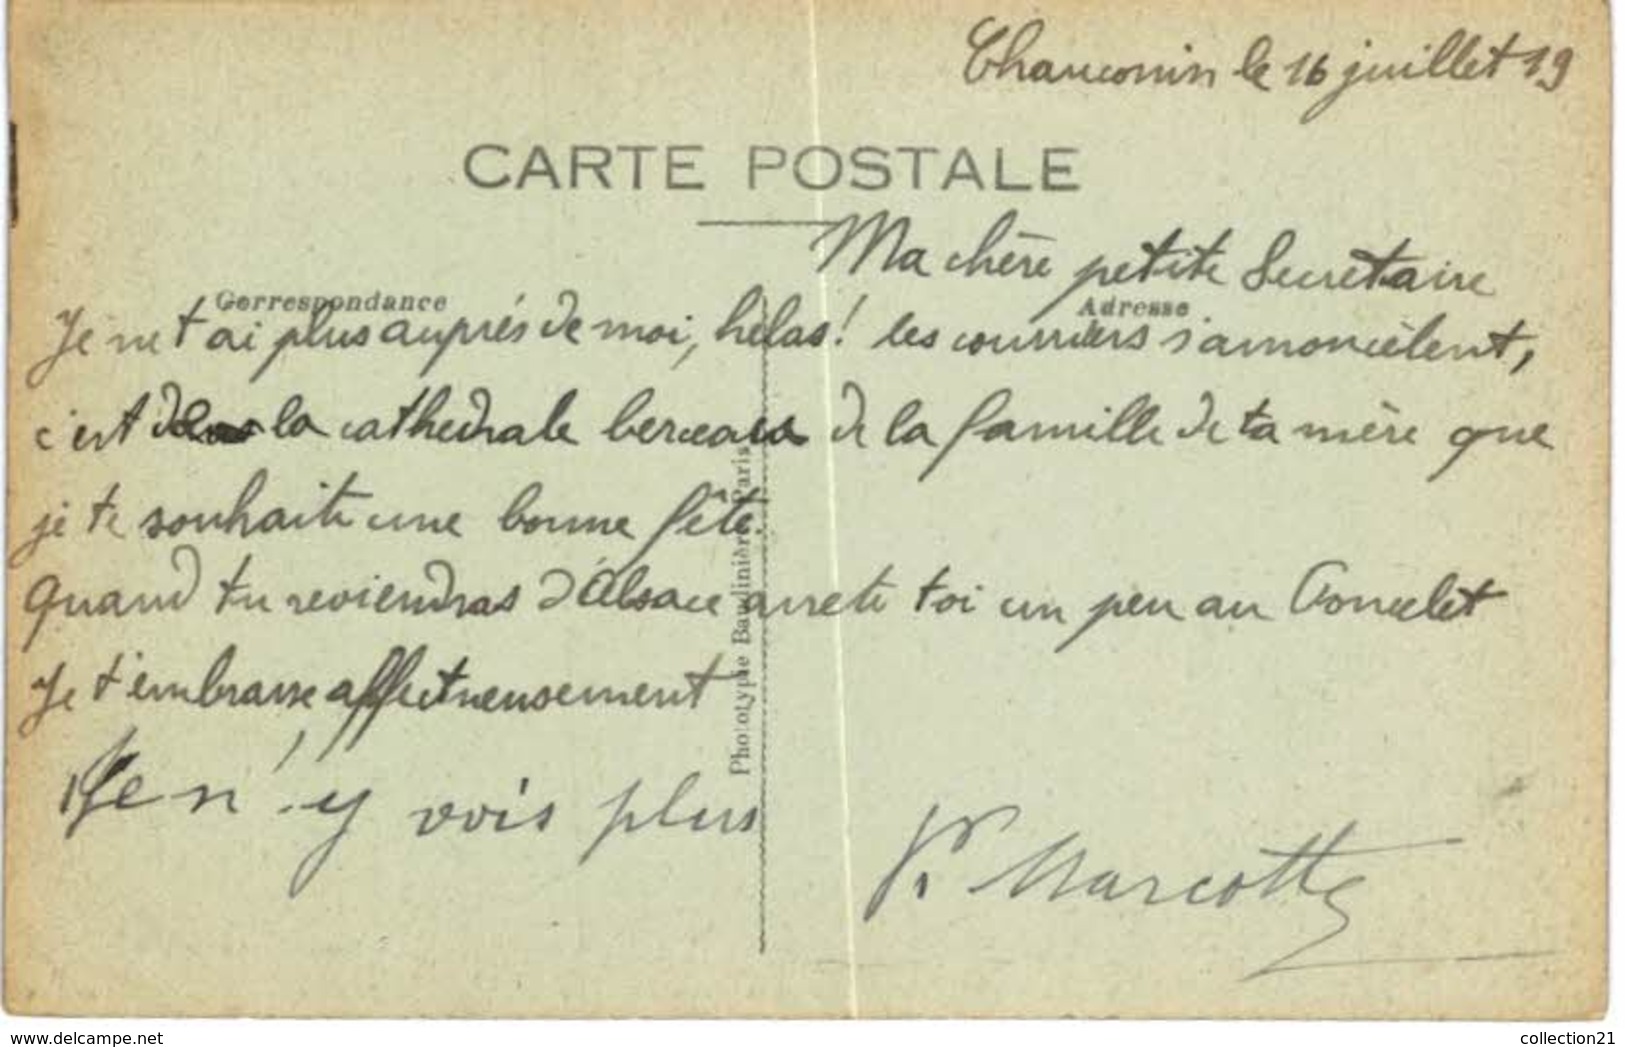 Chauconin le 16 juillet 19
CARTE POSTALE
Ma chère petite Secretaire
Correspondance
Adresse
Je ne t ai plus auprés de moi, hélas! les courriers s'amoncèlent,
c'est de la cathedrale berceau de la famille de ta mère que
je te souhaite une bonne fête.
Quand tu reviendras d'Alsace arrete toi un peu au
Je t'embrasse affectueusement
Je n'y vois plus
Marcotte
Phototypie Baudinière Paris
www.delcampe.net
collection21